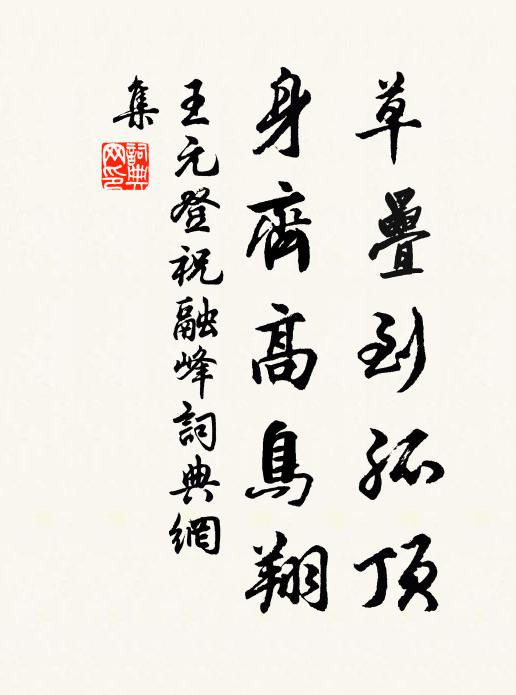 草疊到孤頂
身齊高鳥翔
王元登祝融峰詞典網
集
詞典
网印